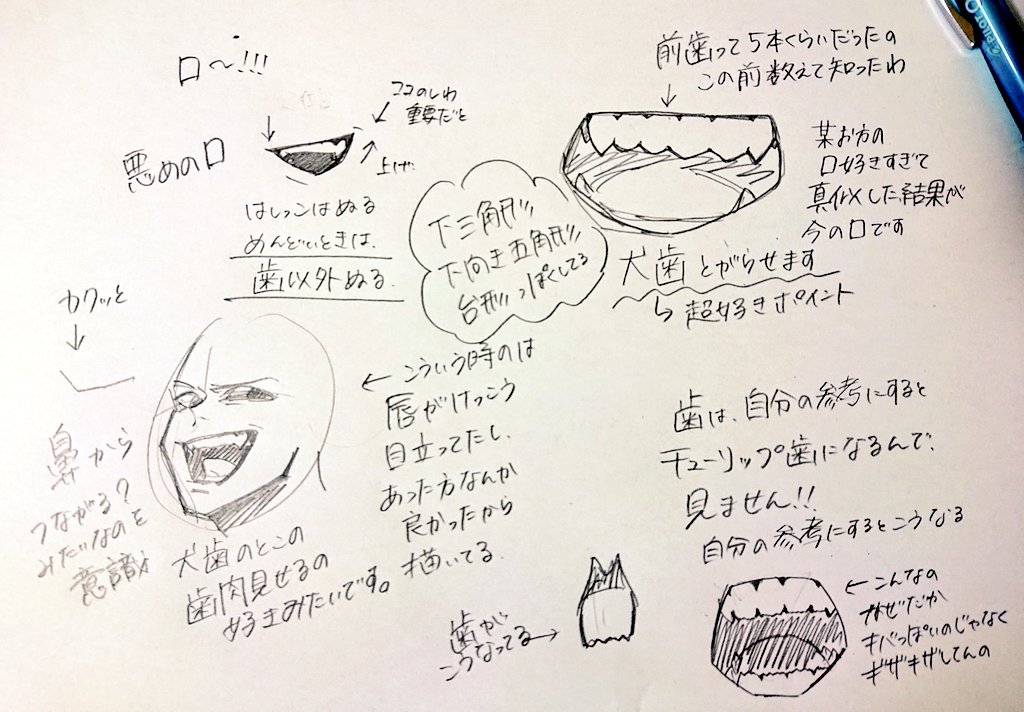 口〜!!!
ココのしわ
重要だと
悪めの口
上げ
はしっこはぬる
めんどいときは、
歯以外ぬる。
前歯って5本くらいだったの
この前数えて知ったわ
某お方の
口好きすぎて
真似した結果が
今の口です
下三角形
下向き五角形
台形っぽくしてる
犬歯とがらせます
↳超好きポイント
カクッと
鼻から
つながる？
みたいなのを
意識
←こういう時のは
唇がけっこう
目立ってたし、
あった方なんか
良かったから
描いてる。
犬歯のとこの
歯肉見せるの
好きみたいです。
歯は、自分の参考にすると
チューリップ歯になるんで、
見ません!!
自分の参考にするとこうなる
歯が
こうなってる→
←こんなの
なぜだか
キバっぽいのじゃなく
ギザギザしてんの
PILOT